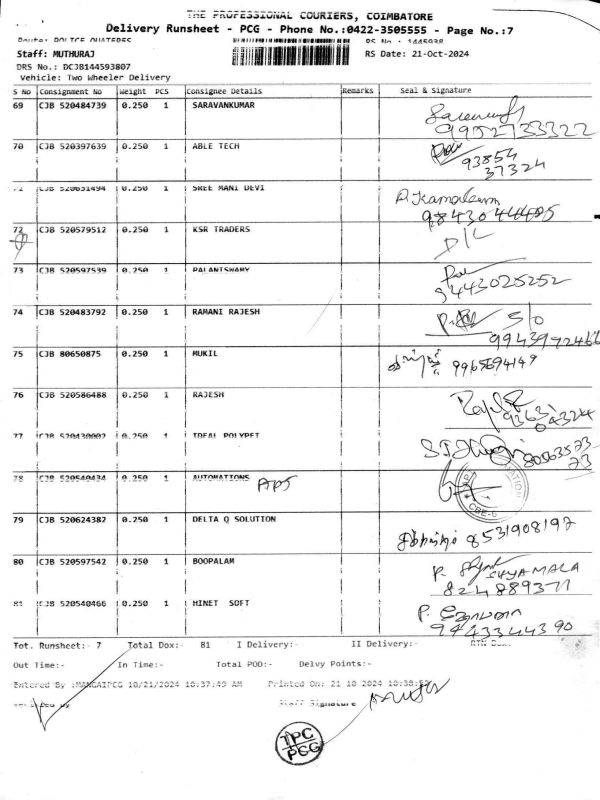 THE PROFESSIONAL COURIERS, COIMBATORE
Delivery Runsheet - PCG - Phone No.:0422-3505555 - Page No.:7
Route: POLICE QUATERES RS No : 1445938
Staff: MUTHURAJ RS Date: 21-Oct-2024
DRS No.: DCJB144593807
Vehicle: Two Wheeler Delivery
S No Consignment No Weight PCS Consignee Details Remarks Seal & Signature
69 CJB 520484739 0.250 1 SARAVANKUMAR
9952733322
70 CJB 520397639 0.250 1 ABLE TECH
93854
37324
71 CJB 520631494 0.250 1 SREE MANI DEVI
72 CJB 520579512 0.250 1 KSR TRADERS
D/L
73 CJB 520597539 0.250 1 PALANISWAMY
9443025252
74 CJB 520483792 0.250 1 RAMANI RAJESH
S/o
9943992466
75 CJB 80650875 1 MUKIL
9965694149
76 CJB 520586488 0.250 1 RAJESH
04324
77 CJB 520430002 0.250 1 IDEAL POLYPET
78 CJB 520540434 0.250 1 AUTOMATIONS APS
CBE-6
79 CJB 520624382 0.250 1 DELTA Q SOLUTION
8531908197
80 CJB 520597542 0.250 1 BOOPALAM
P. SHYAMALA
8248893 71
81 CJB 520540466 0.250 1 HINET SOFT
9443344390
Tot. Runsheet:- 7 Total Dox:- 81 I Delivery:- II Delivery:- RTN Dox:
Out Time:- In Time:- Total POD:- Delvy Points:-
Entered By :MANGAIPCG 10/21/2024 10:37:49 AM Printed On: 21 10 2024 10:38:52
Verified By Staff Signature
TPC
PCG